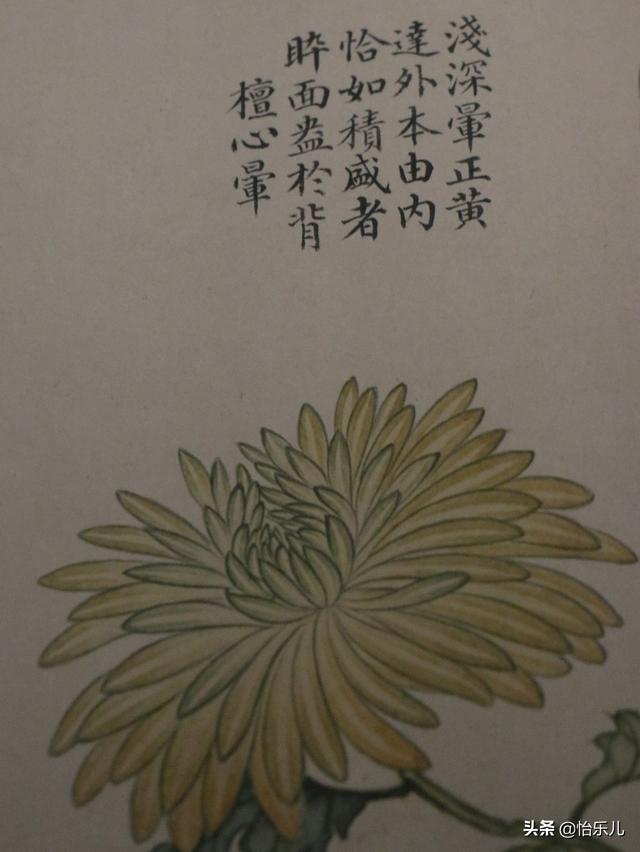 淺深暈正黄
達外本由内
恰如積盛者
睟面盎於背
檀心暈
头条 @怡乐儿